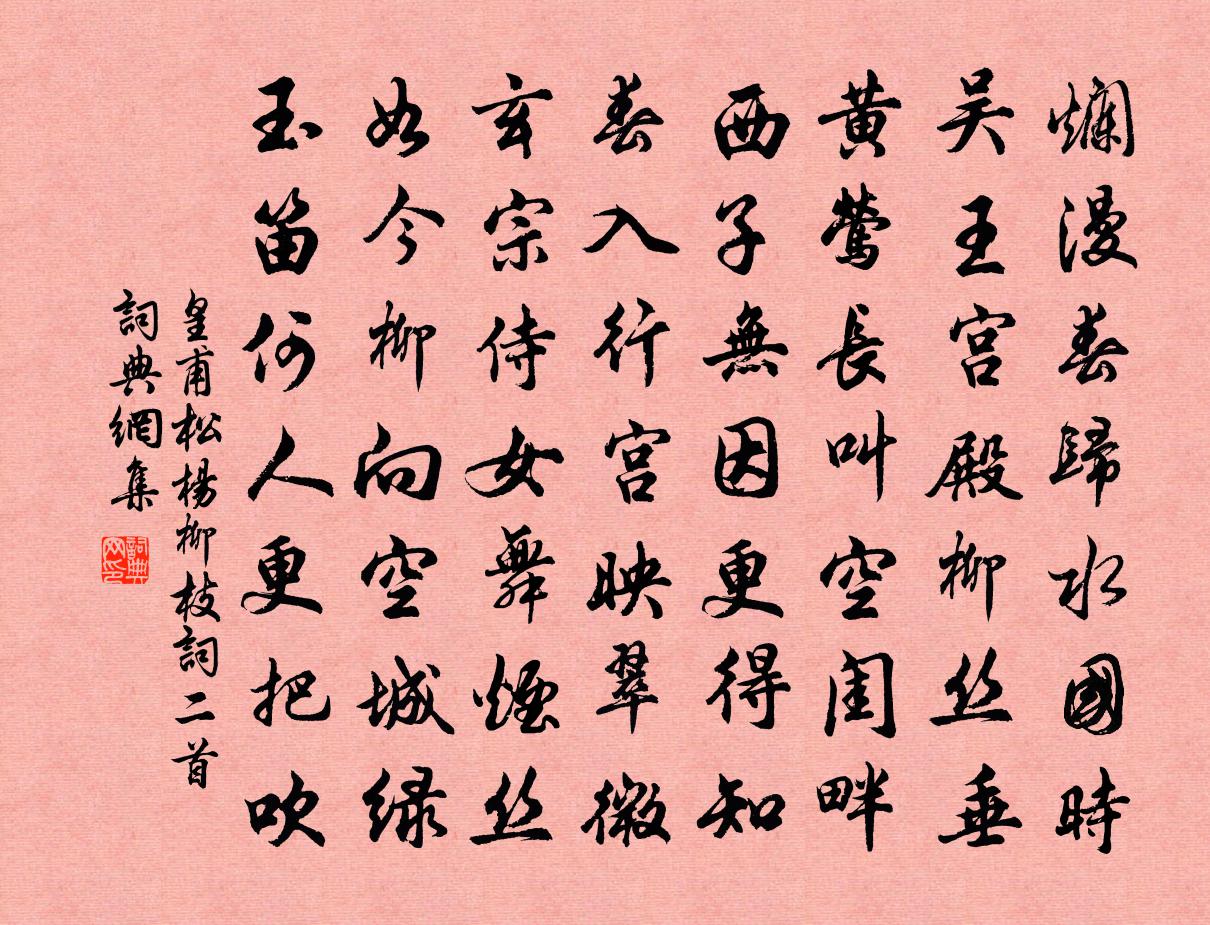 爛漫春歸水國時
吴王宫殿柳丝垂
黄鶯長叫空闺畔
西子無因更得知
春入行宫映翠微
玄宗侍女舞煙丝
如今柳向空城绿
玉笛何人更把吹
皇甫松楊柳枝詞二首
詞典網集
詞典
网印